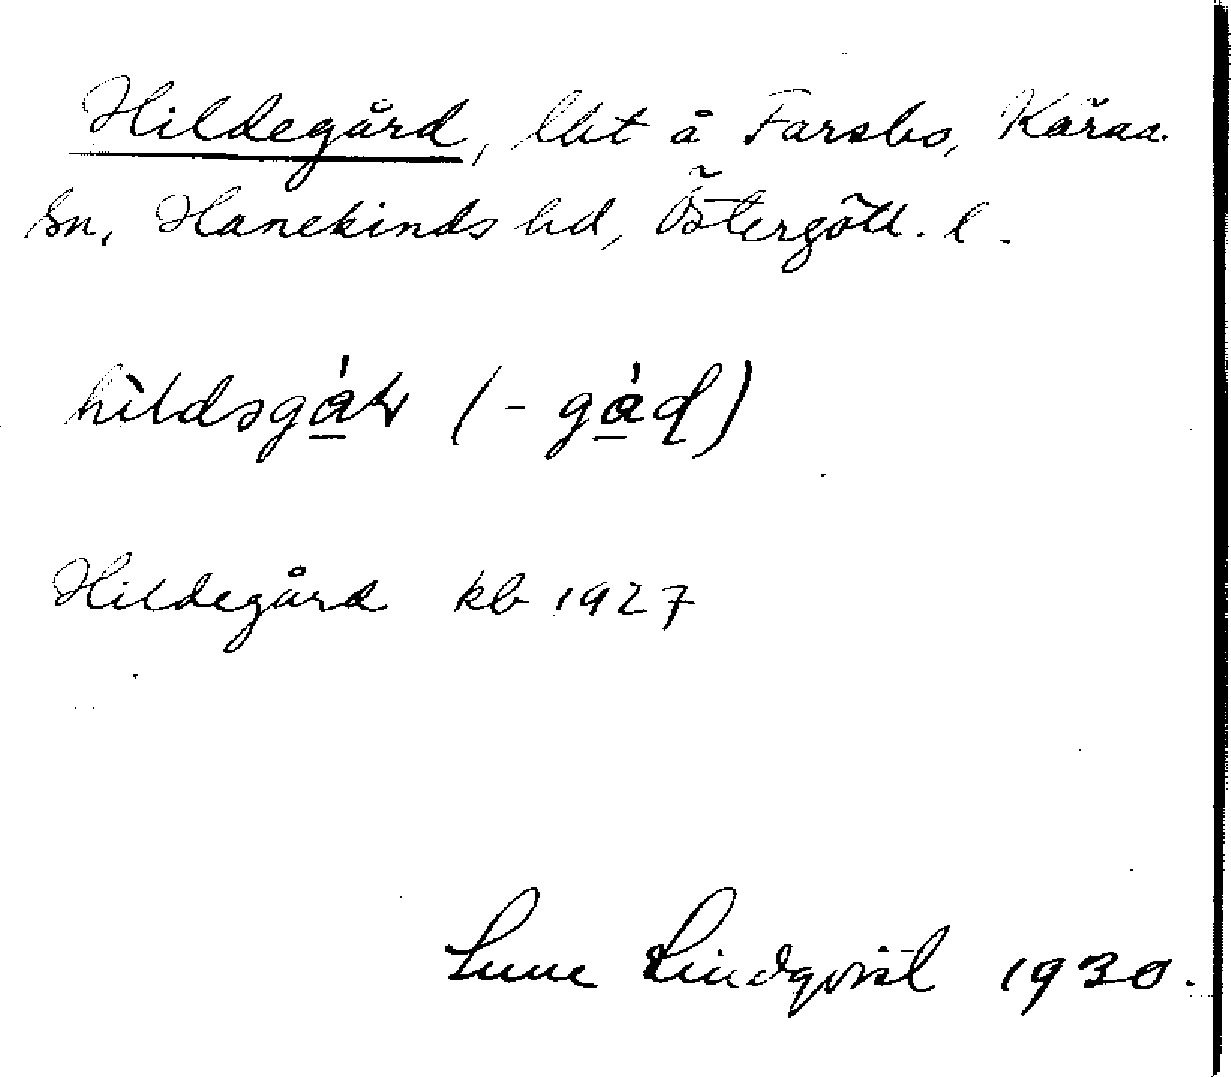 Hildegård, lht å Farsbo, Kärna
sn, Hanekinds hd, Östergötl. l.
hildəgar (-gaḍ)
Hildegård kb 1927
Sune Lindqvist 1930.